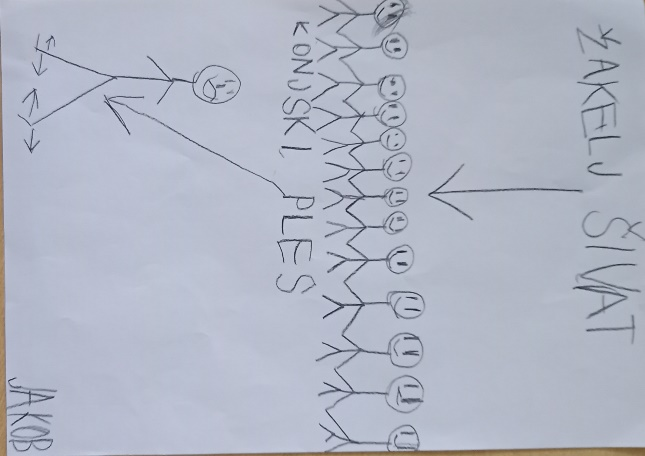 ŽAKELJ ŠIVAT
KONJSKI PLES
JAKOB